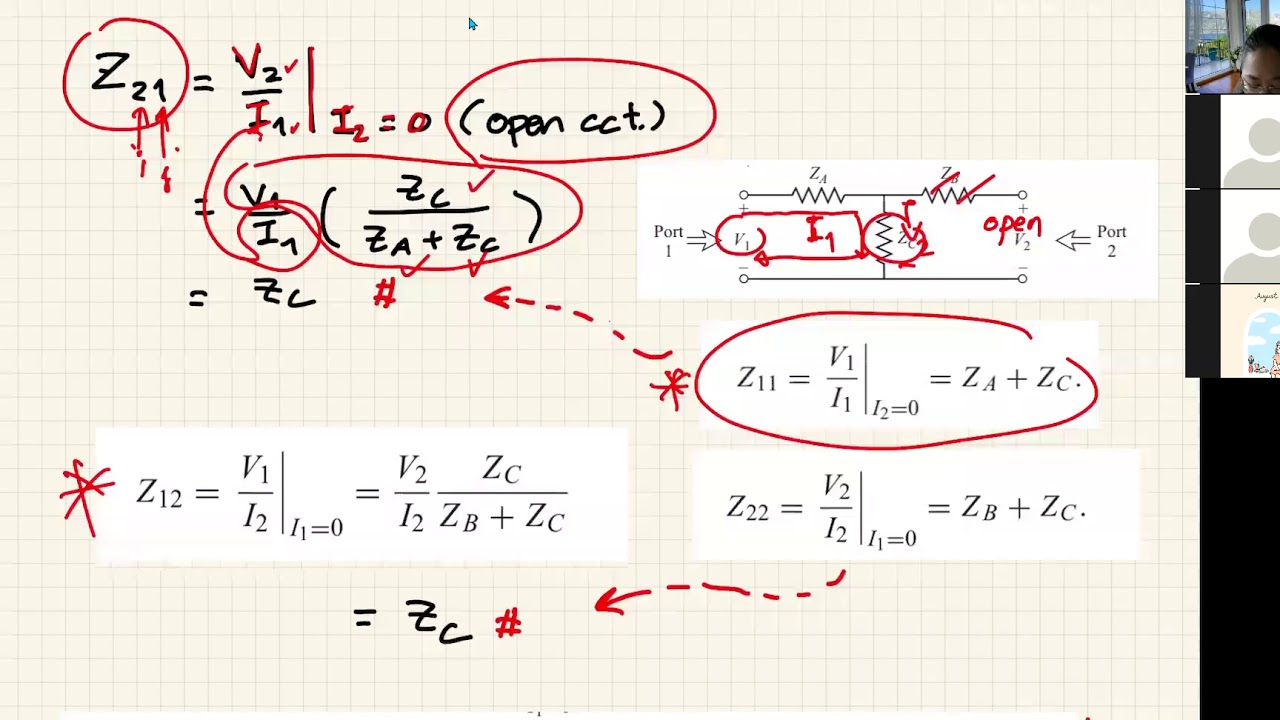 Z21 = V2/I1 | I2 = 0 (open cct.)
= V1/I1 ( ZC / (ZA + ZC) )
= ZC #
ZA ZB
Port 1 + V1 − I1 ZC open + V2 − Port 2
* Z11 = V1/I1 | I2=0 = ZA + ZC.
* Z12 = V1/I2 | I1=0 = V2/I2 ZC / (ZB + ZC)
Z22 = V2/I2 | I1=0 = ZB + ZC.
= ZC #
August